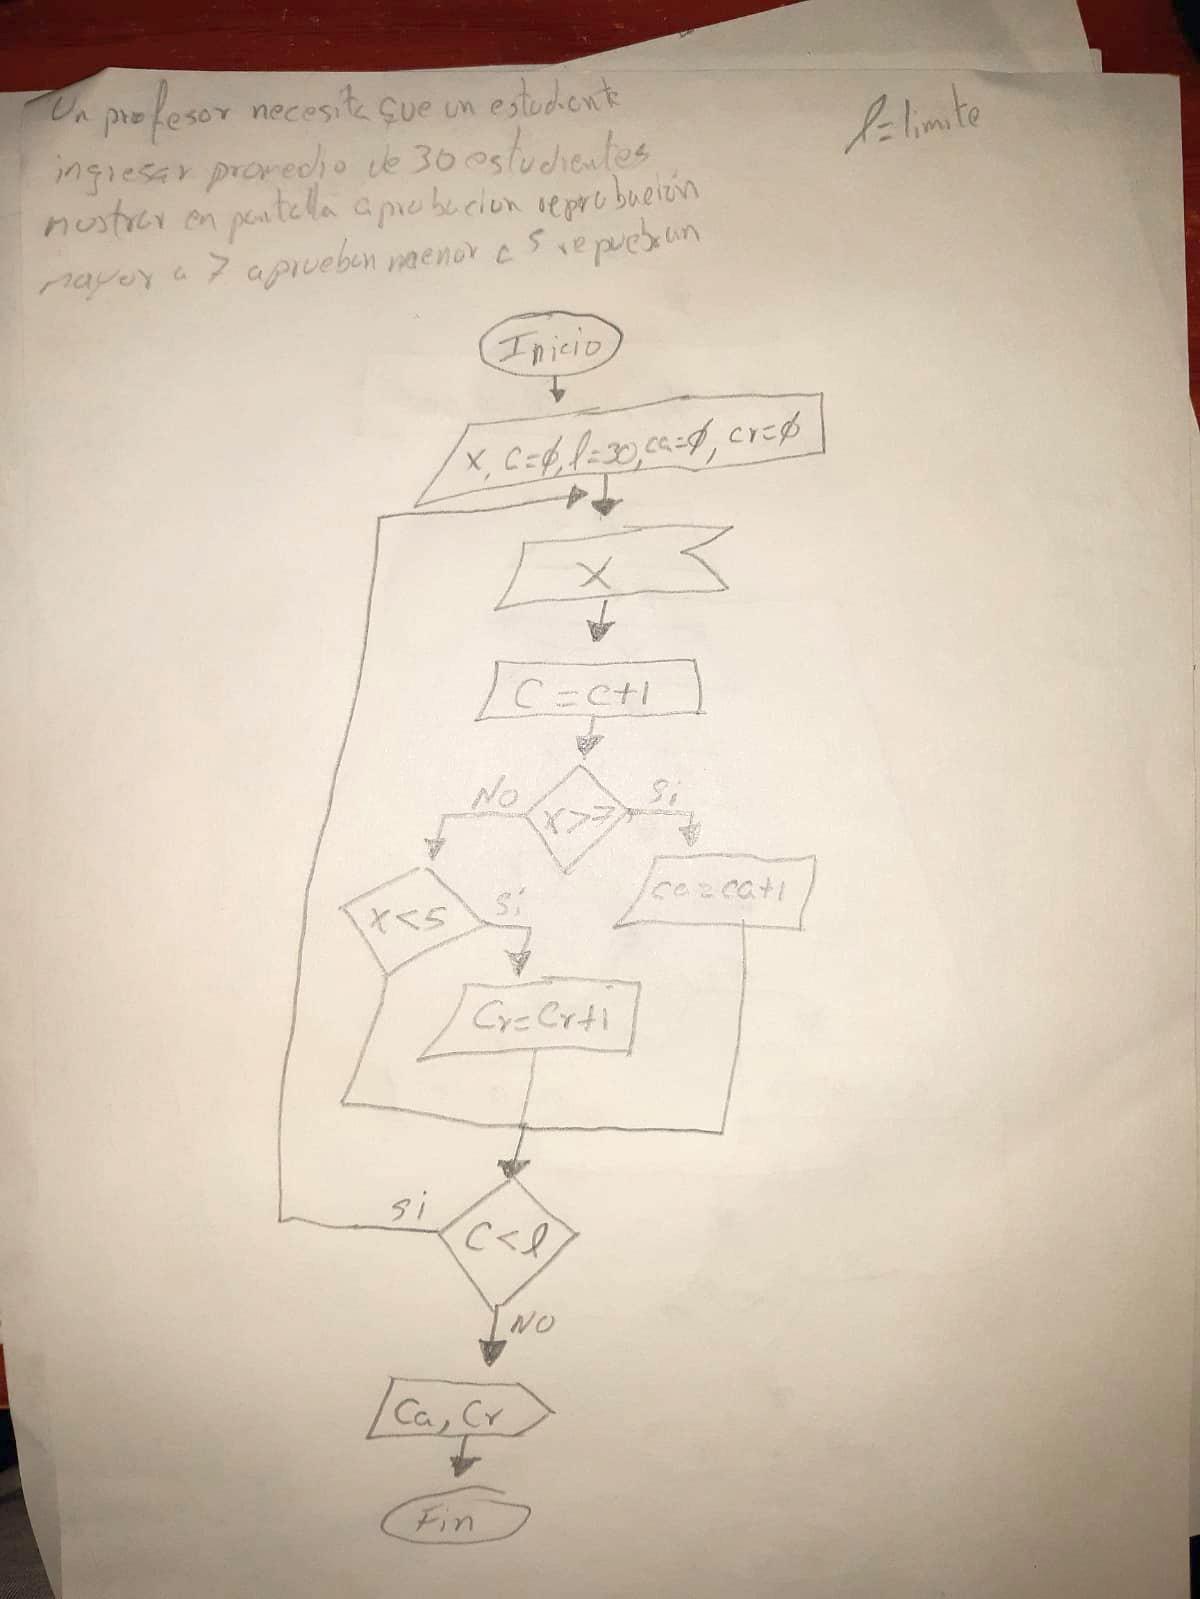 Un profesor necesita que un estudiante
ingresar promedio de 30 estudientes
mostrar en pantalla aprobacion reprobación
mayor a 7 aprueban menor a 5 repueban
l=limite
Inicio
x, c=ϕ, l=30, ca=ϕ, cr=ϕ
X
C=c+1
No
x>7
Si
x<5
Si
ca=ca+1
Cr=Cr+1
si
C<l
NO
Ca, Cr
Fin